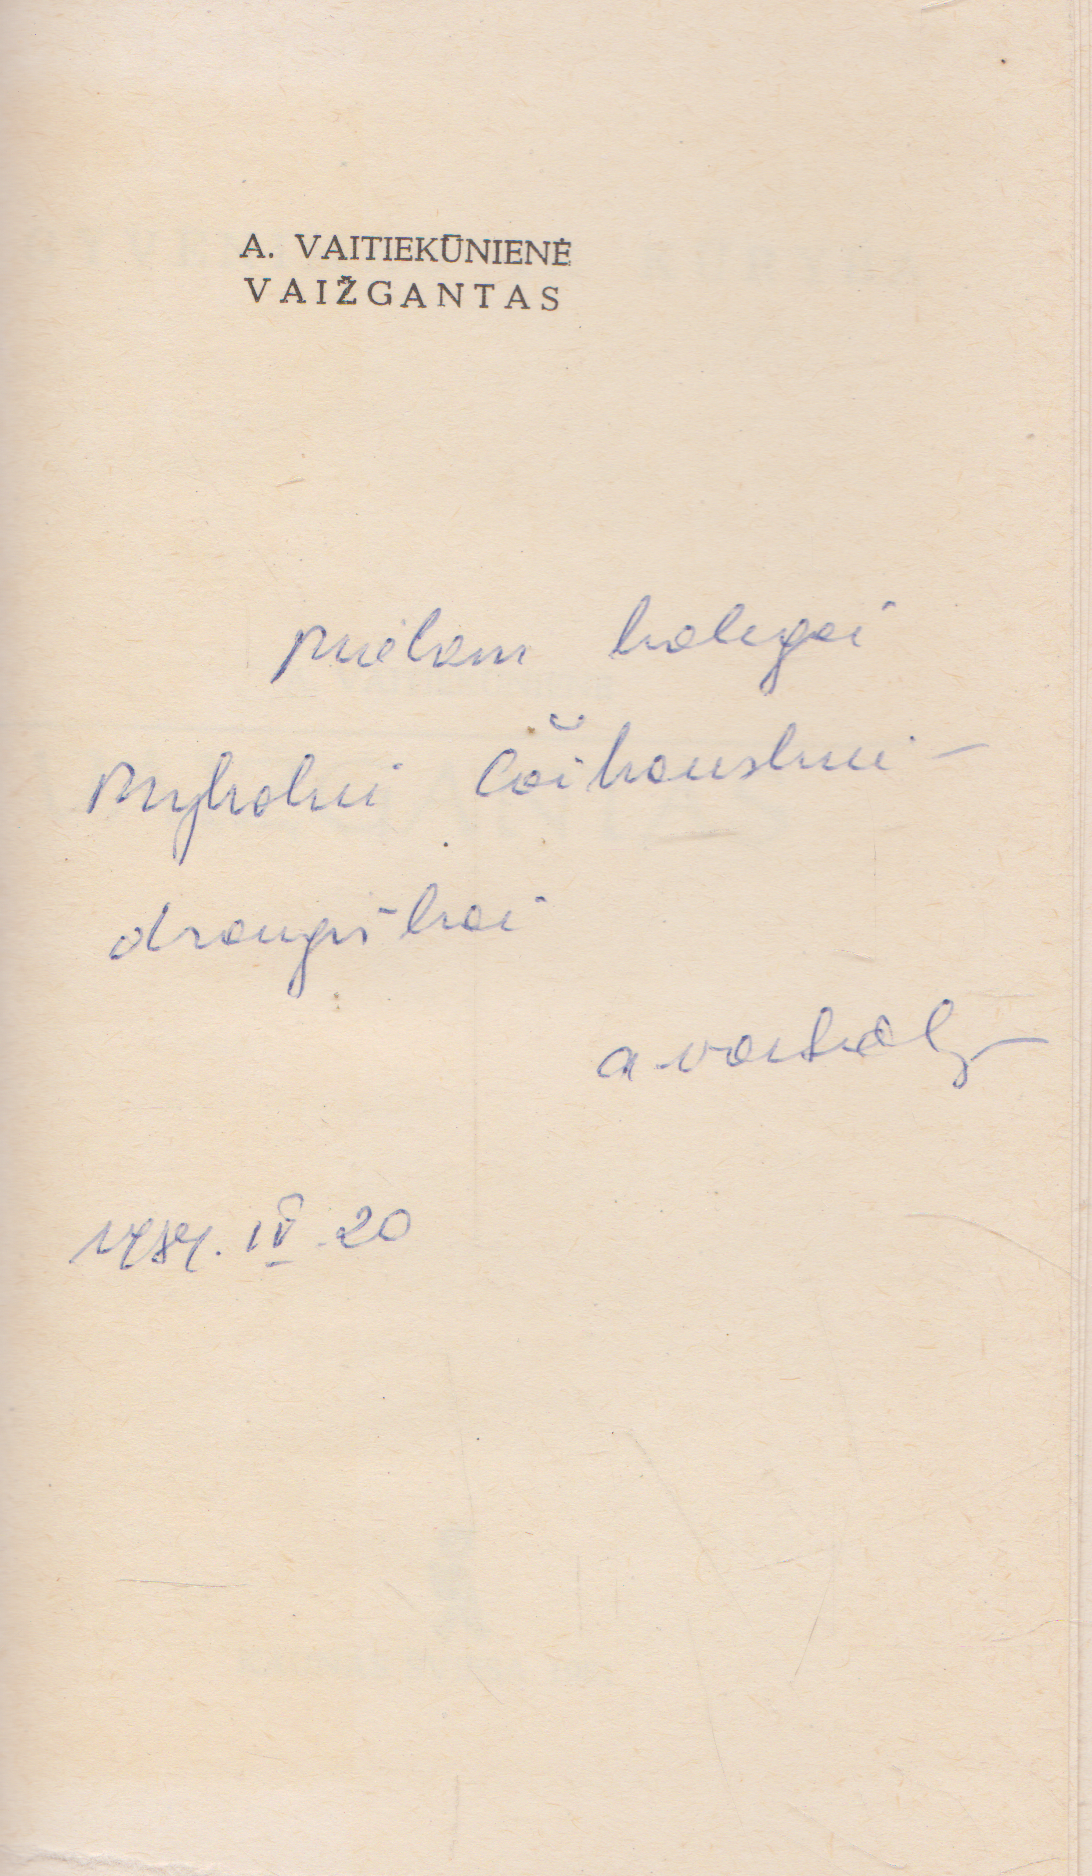 A. VAITIEKŪNIENĖ
VAIŽGANTAS
Mielam kolegai
Mykolui Čaikauskui –
draugiškai
1984. IV. 20